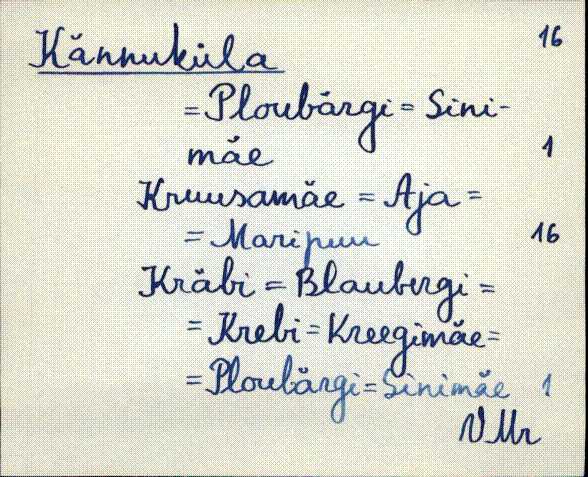 Kännuküla 16
= Ploubärgi = Sini-
mäe 1
Kruusamäe = Aja =
= Maripuu 16
Kräbi = Blaubergi =
= Krebi = Kreegimäe =
= Ploubärgi = Sinimäe 1
VMr